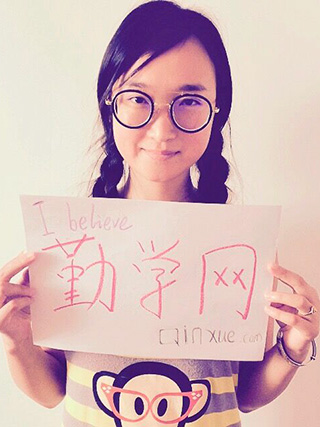 I believe
勤学网
Qinxue.com